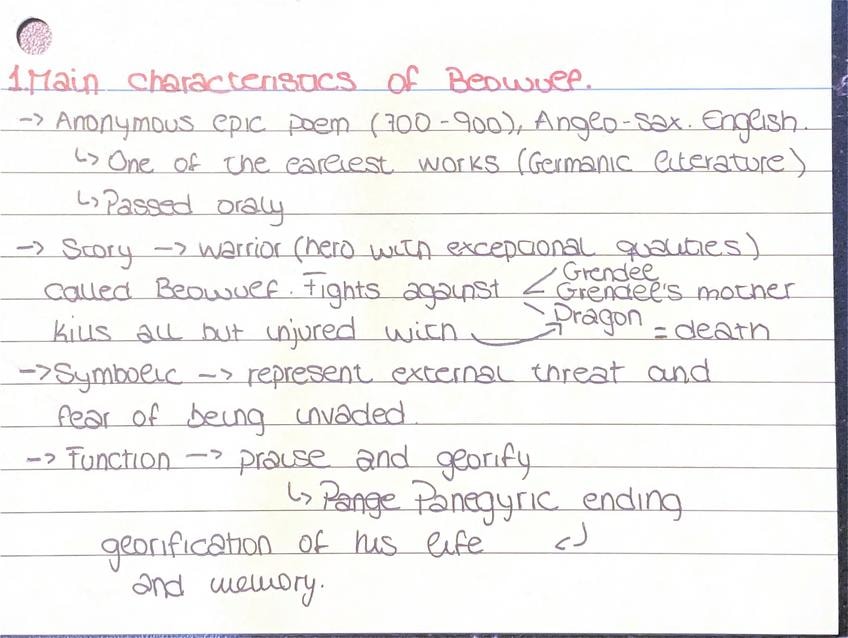 1. Main characteristics of Beowulf.
-> Anonymous epic poem (700-900), Anglo-Sax. English.
↳ One of the earliest works (Germanic literature)
↳ Passed oraly
-> Story -> warrior (hero with exceptional qualities)
called Beowulf. Fights against < Grendel
Grendel's mother
Dragon
kills all but injured with = death
-> Symbolic -> represent external threat and
fear of being invaded.
-> Function -> praise and glorify
↳ Pange Panegyric ending
glorification of his life
and memory.